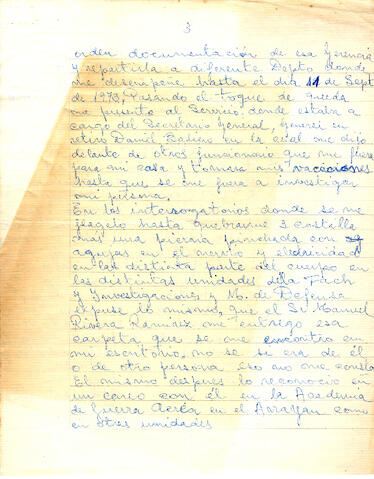 3
orden documentación de esa Gerencia
y repartirla a diferente Depto donde
me desempeñe hasta el día 11 de Sept
de 1973, Pasando el toque de queda
me presento al Servicio donde estaba a
cargo del Secretario General, General en
retiro Daniel en la cual me dijo
delante de otros funcionario que me fuera
para mi casa y tomara mis vacaciones
hasta que se me fuera a investigar
mi persona.
En los interrogatorios donde se me
hasta quebrarme 3 costilla
mas una pierna pinchada con
agujas en el nervio y electricidad
en las distinta parte del cuerpo en
las distintas unidades de la Fach
y Investigaciones y M. de Defensa
expuse lo mismo, que el Sr Manuel
Rivera Ramirez me entrego esa
carpeta que se me encontro en
mi escritorio, no se si era de él
o de otra persona eso no me consta
El mismo despues lo reconocio en
un careo con él en la Academia
de Guerra Aerea en el Arrayan como
en otras unidades